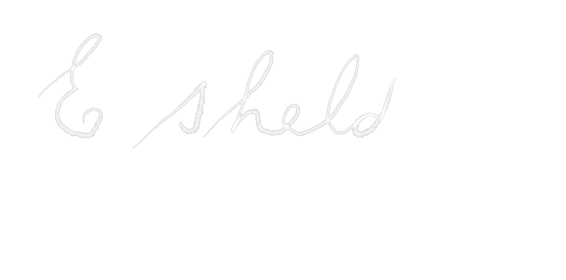 E sheld